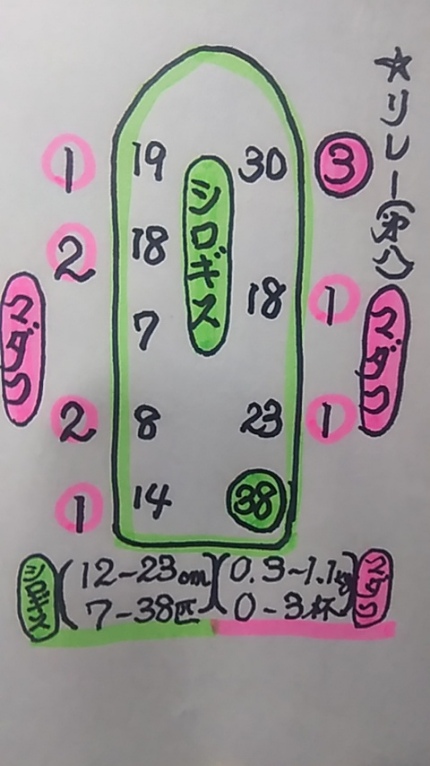 ☆リレー(弟八)
1 19 30 3
シロギス
2 18
18 1
マダコ 7 マダコ
2 8 23 1
1 14 38
シロギス (12-23cm)(0.3~1.1kg) マダコ
7-38匹 0-3杯